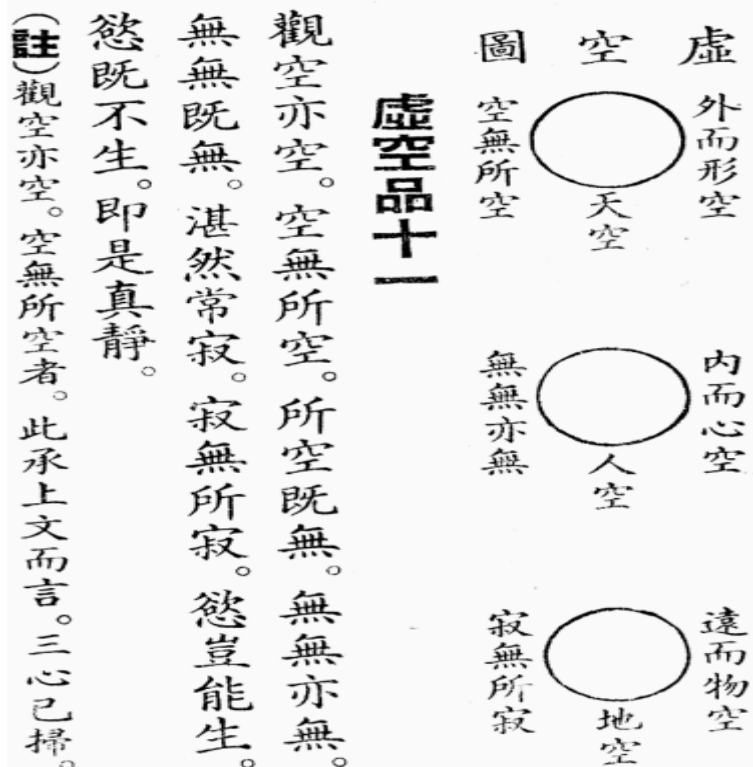 虛空圖
外而形空
天空
空無所空
內而心空
人空
無無亦無
遠而物空
地空
寂無所寂
虛空品十一
觀空亦空。空無所空。所空既無。無無亦無。
無無既無。湛然常寂。寂無所寂。慾豈能生。
慾既不生。即是真靜。
(註)觀空亦空。空無所空者。此承上文而言。三心已掃。